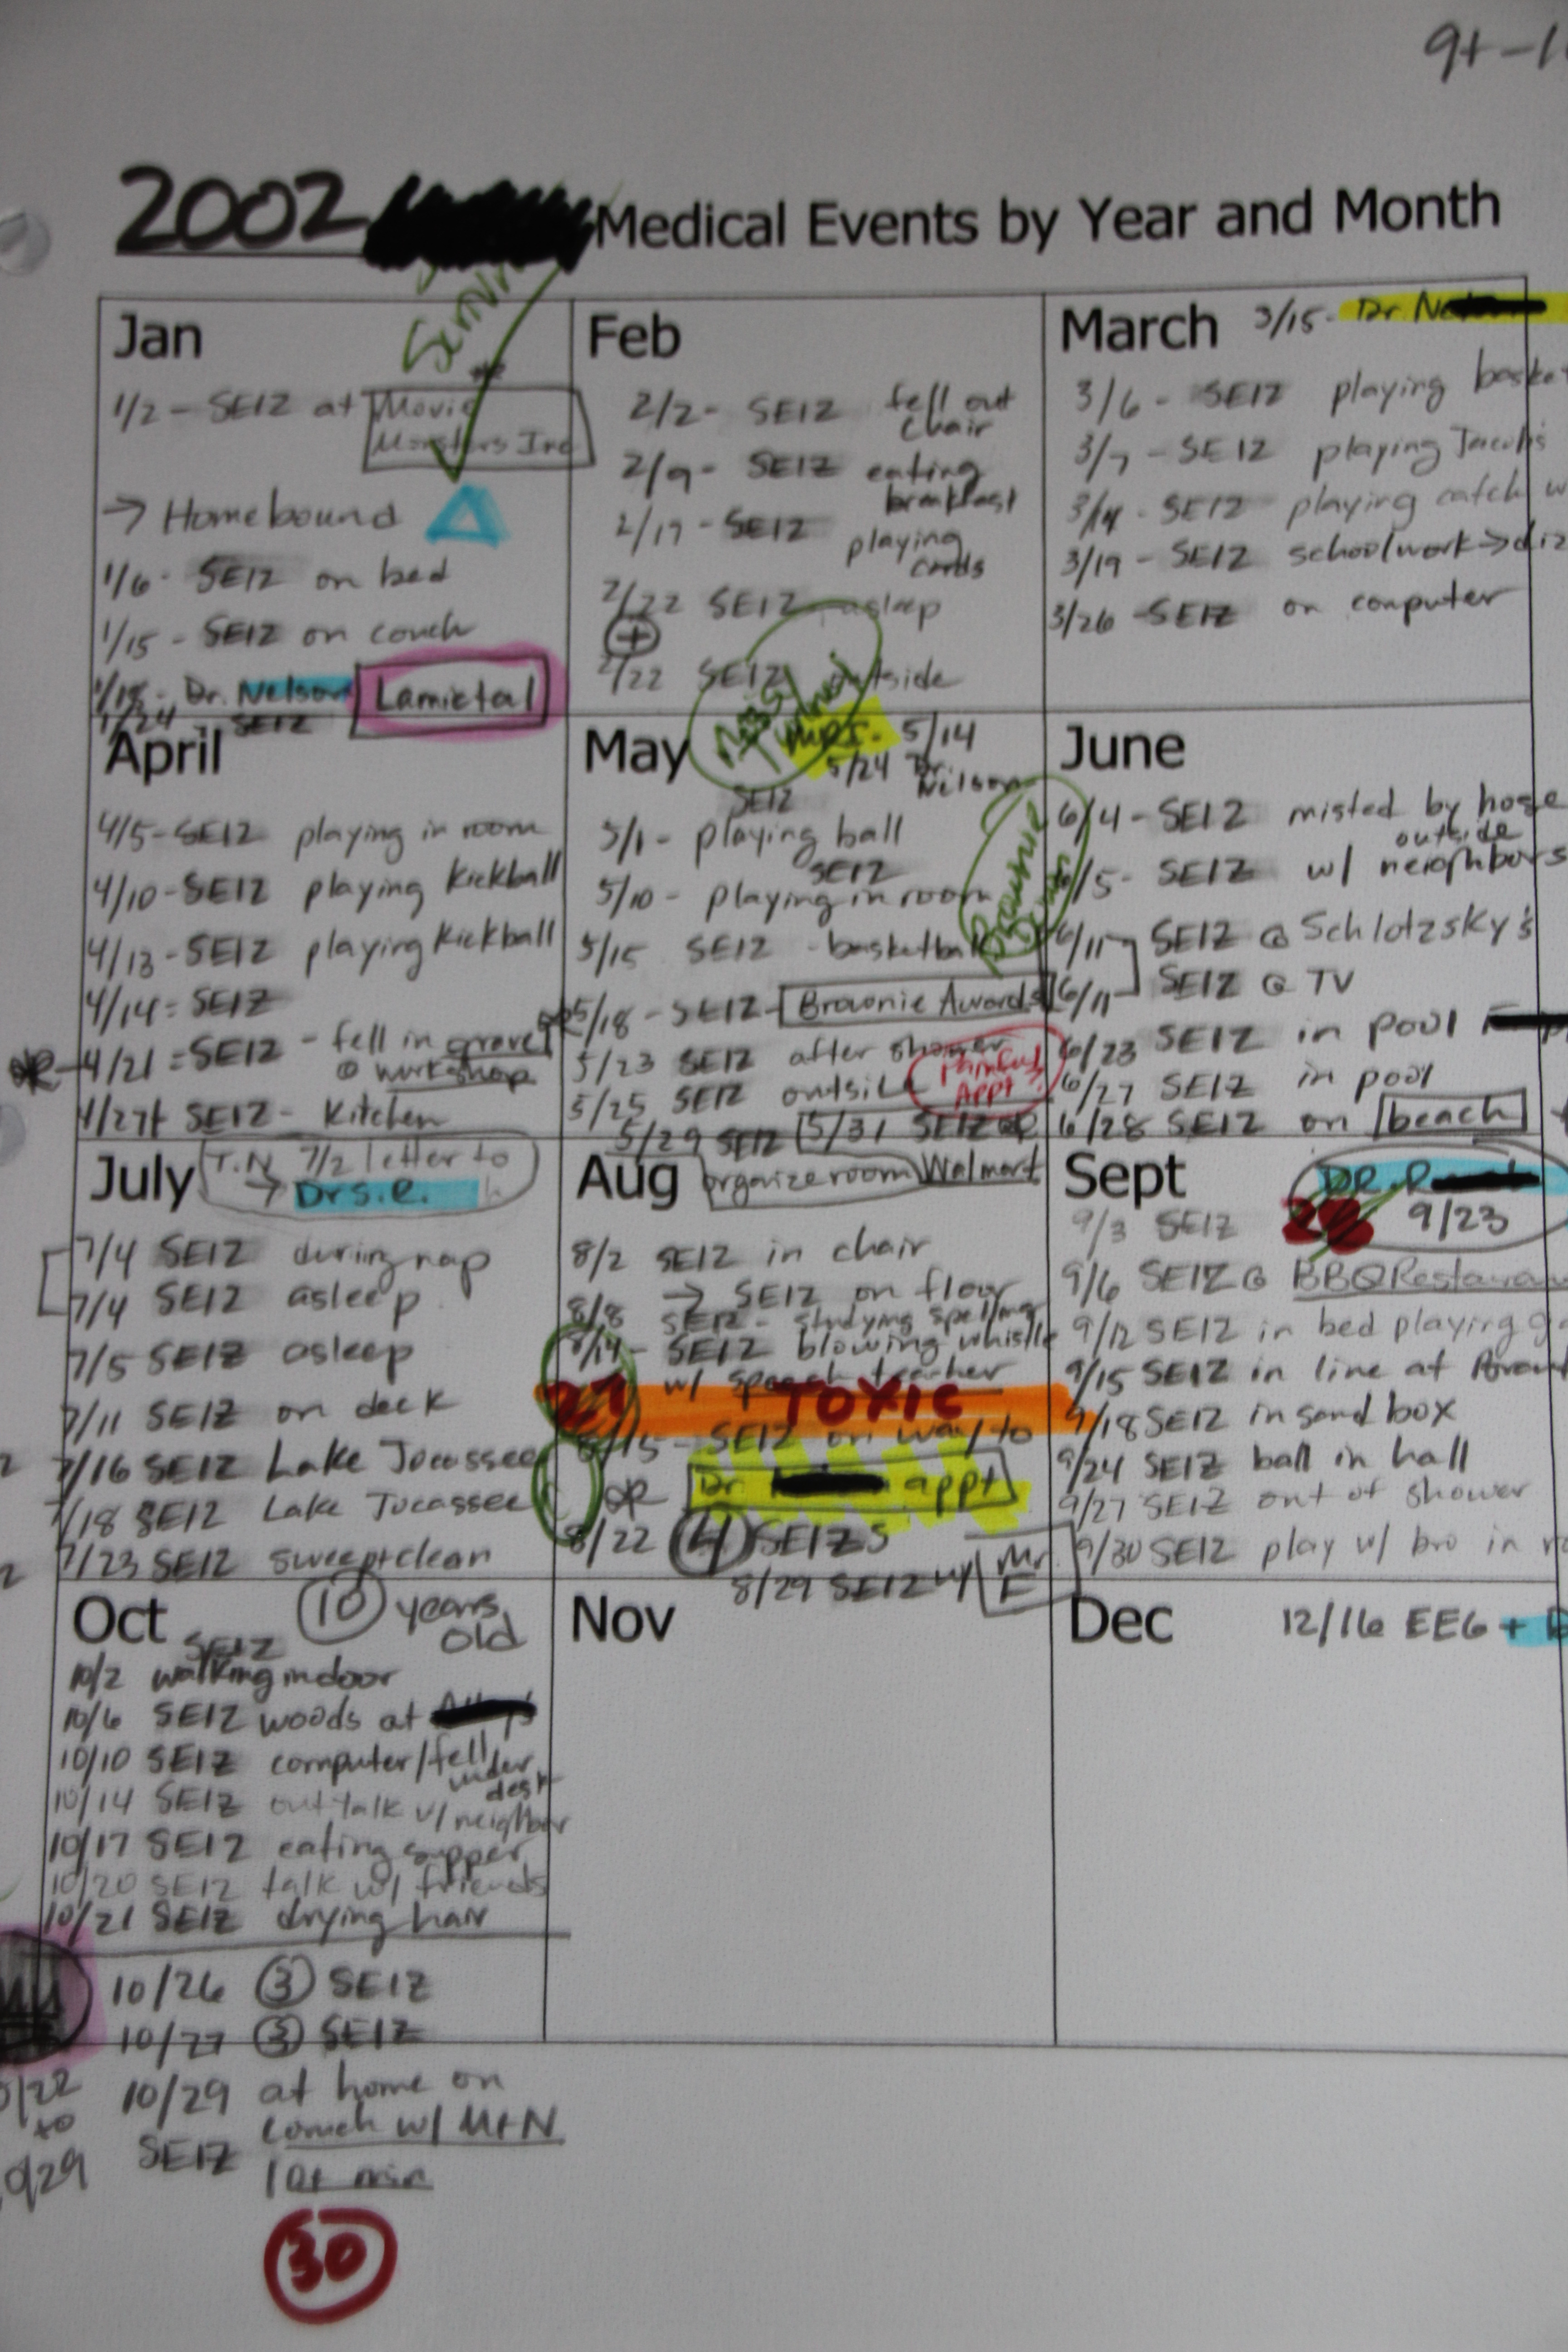 9+-1
2002 Medical Events by Year and Month
Jan
1/2 - SEIZ at Movie
Monsters Inc
→ Homebound
1/6 - SEIZ on bed
1/15 - SEIZ on couch
1/18 - Dr. Nelson Lamictal
1/24 SEIZ
Feb
2/2 - SEIZ fell out
chair
2/9 - SEIZ eating
breakfast
2/17 - SEIZ playing
cards
2/22 SEIZ asleep
+
2/22 SEIZ outside
March 3/15 - Dr. Ne
3/6 - SEIZ playing basket
3/7 - SEIZ playing Jacob's
3/14 - SEIZ playing catch w
3/19 - SEIZ schoolwork → diz
3/26 SEIZ on computer
April
4/5 - SEIZ playing in room
4/10 - SEIZ playing Kickball
4/13 - SEIZ playing Kickball
4/14 = SEIZ
4/21 = SEIZ - fell in gravel
@ workshop
4/27 SEIZ - Kitchen
May
appt. 5/14
5/24 Dr.
Nelson
SEIZ
5/1 - playing ball
SEIZ
5/10 - playing in room
5/15 SEIZ - basketball
5/18 - SEIZ - Brownie Awards
Brownie
5/23 SEIZ after shower
5/25 SEIZ outside
Appt
5/29 SEIZ 5/31 SEIZ @
organize room Walmart
June
6/4 - SEIZ misted by hose
outside
6/5 - SEIZ w/ neighbors
6/11 SEIZ @ Schlotzsky's
6/11 SEIZ @ TV
6/23 SEIZ in pool
6/27 SEIZ in pool
6/28 SEIZ on beach
July T.N 7/2 letter to
→ Drs. R.
7/4 SEIZ during nap
7/4 SEIZ asleep
7/5 SEIZ asleep
7/11 SEIZ on deck
7/16 SEIZ Lake Jocassee
7/18 SEIZ Lake Jocassee
7/23 SEIZ sweep+clean
Aug
8/2 SEIZ in chair
→ SEIZ on floor
8/8 SEIZ - studying spelling
8/14 - SEIZ blowing whistle
w/ speech teacher
27 TOXIC
8/15 - SEIZ on way to
Dr appt
8/22 4 SEIZS
8/29 SEIZ w/ Mr.
F
Sept DR. R
9/23
9/3 SEIZ
9/6 SEIZ @ BBQ Restauran
9/12 SEIZ in bed playing ga
9/15 SEIZ in line at
9/18 SEIZ in sand box
9/24 SEIZ ball in hall
9/27 SEIZ out of shower
9/30 SEIZ play w/ bro in r
Oct 10 years
old
SEIZ
10/2 walking indoor
10/6 SEIZ woods at
10/10 SEIZ computer/fell
under
desk
10/14 SEIZ out talk w/ neighbor
10/17 SEIZ eating supper
10/20 SEIZ talk w/ friends
10/21 SEIZ drying hair
10/26 3 SEIZ
10/27 3 SEIZ
10/29 at home on
couch w/ M+N
SEIZ
10+ min
0/22
to
0/29
30
Nov
Dec 12/16 EEG + D